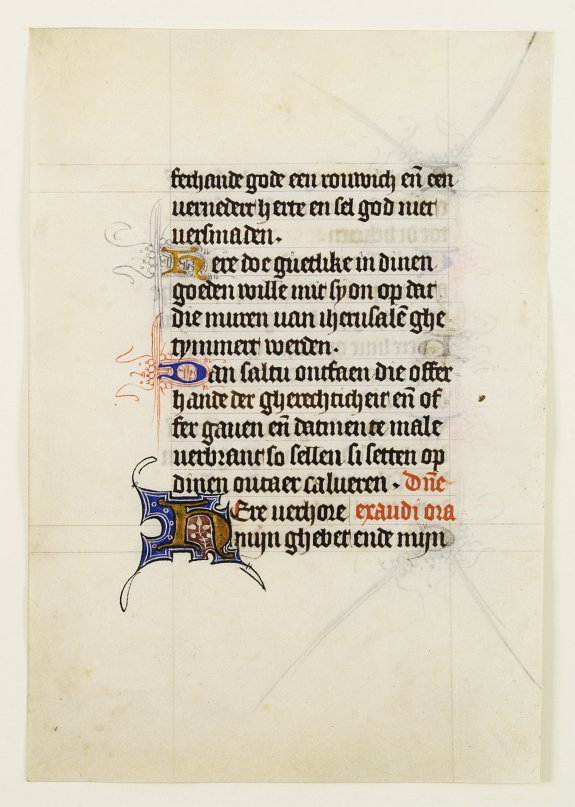 ferhande gode een rouwich en̄ een
vernedert herte en sel god niet
versmaden.
Here doe guetlike in dinen
goeden wille mit syon op dat
die muren van iherusalē ghe
tymmert werden.
Dan saltu ontfaen die offer
hande der gherechticheit en̄ of
fer gauen en̄ datmen te male
verbrant so sellen si setten op
dinen outaer calueren. Dn̄e
HEre verhore exaudi ora
mijn ghebet ende mijn